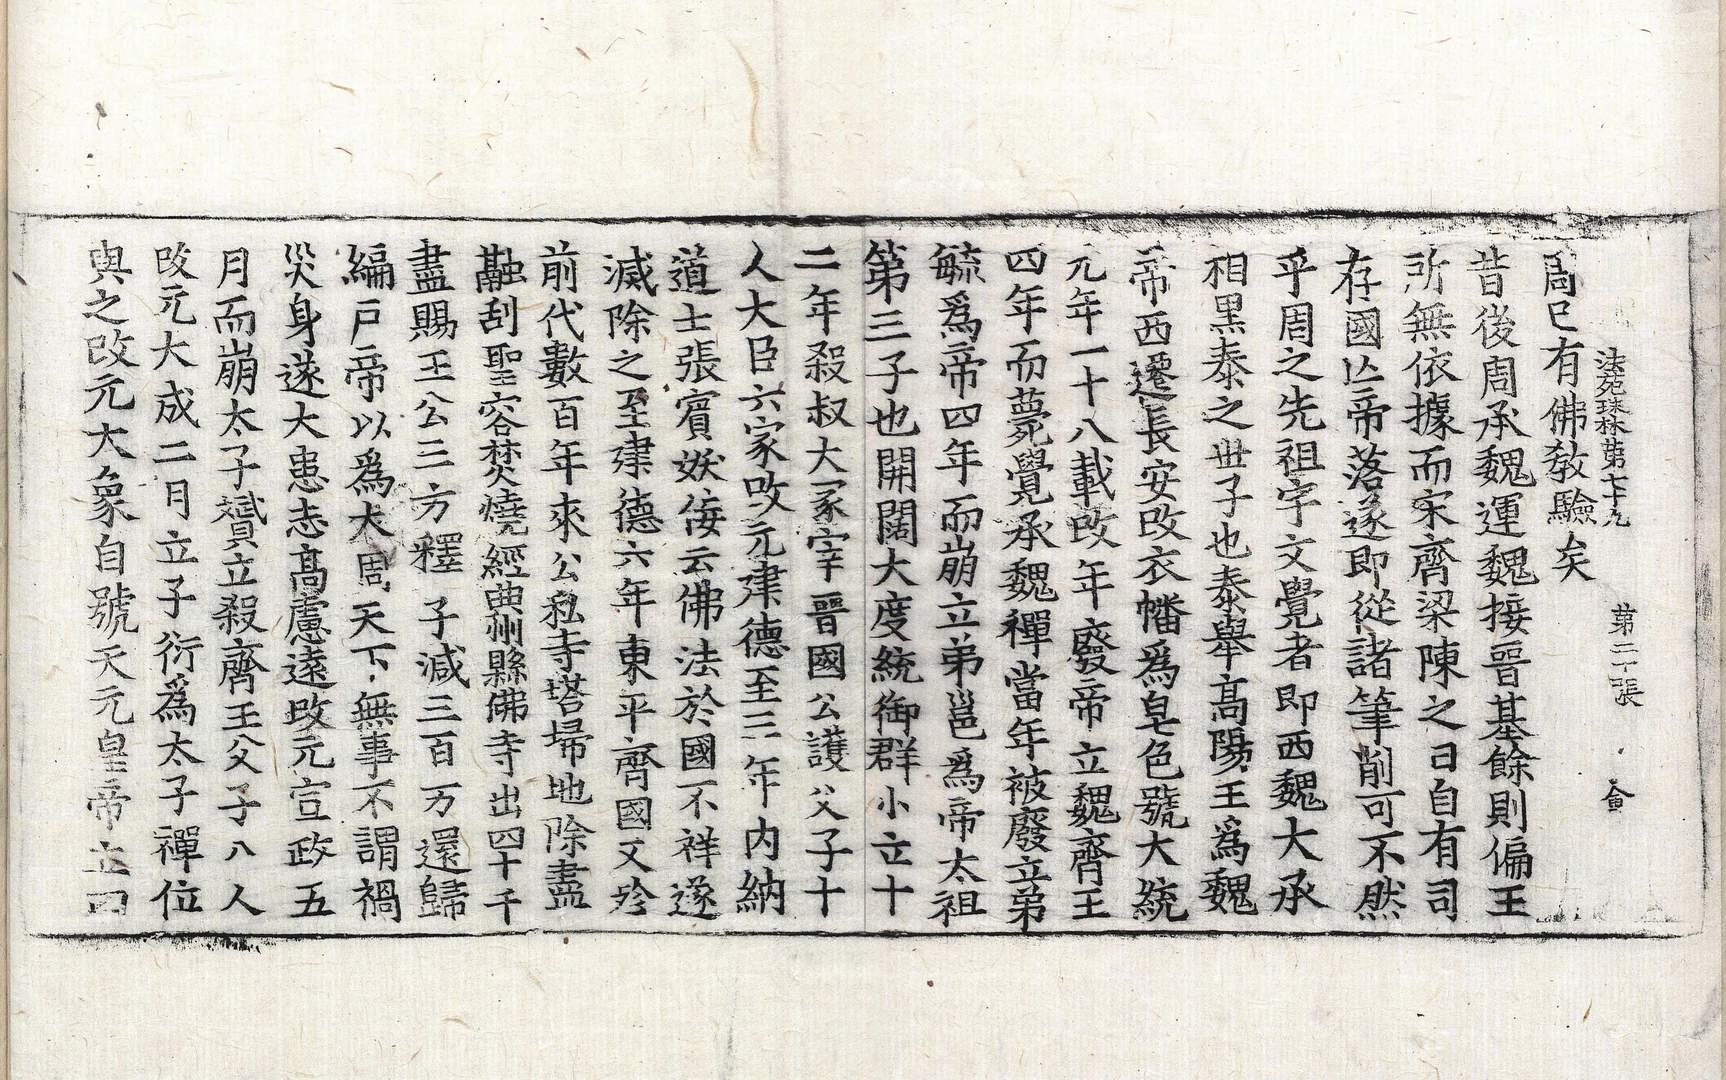 法苑珠林第七十九　第二十張　會
周已有佛教驗矣
昔後周承魏運魏接晉基餘則偏王
所無依據而宋齊梁陳之日自有司
存國亾帝落遂即從諸筆削可不然
乎周之先祖宇文覺者即西魏大承
相黑泰之世子也泰舉高陽王爲魏
帝西遷長安改衣幡爲皂色號大統
元年一十八載改年廢帝立魏齊王
四年而薨覺承魏禪當年被廢立弟
毓爲帝四年而崩立弟邕爲帝太祖
第三子也開闊大度統御群小立十
二年殺叔大冢宰晉國公護父子十
人大臣六家改元建德至三年內納
道士張賓妖佞云佛法於國不祥遂
滅除之至建德六年東平齊國又殄
前代數百年來公私寺塔埽地除盡
融刮聖容焚燒經典州縣佛寺出四十千
盡賜王公三方釋子減三百万還歸
編戸帝以爲大周天下無事不謂禍
災身遂大患志高慮遠改元宣政五
月而崩太子贇立殺齊王父子八人
改元大成二月立子衍爲太子禪位
與之改元大象自號天元皇帝立四